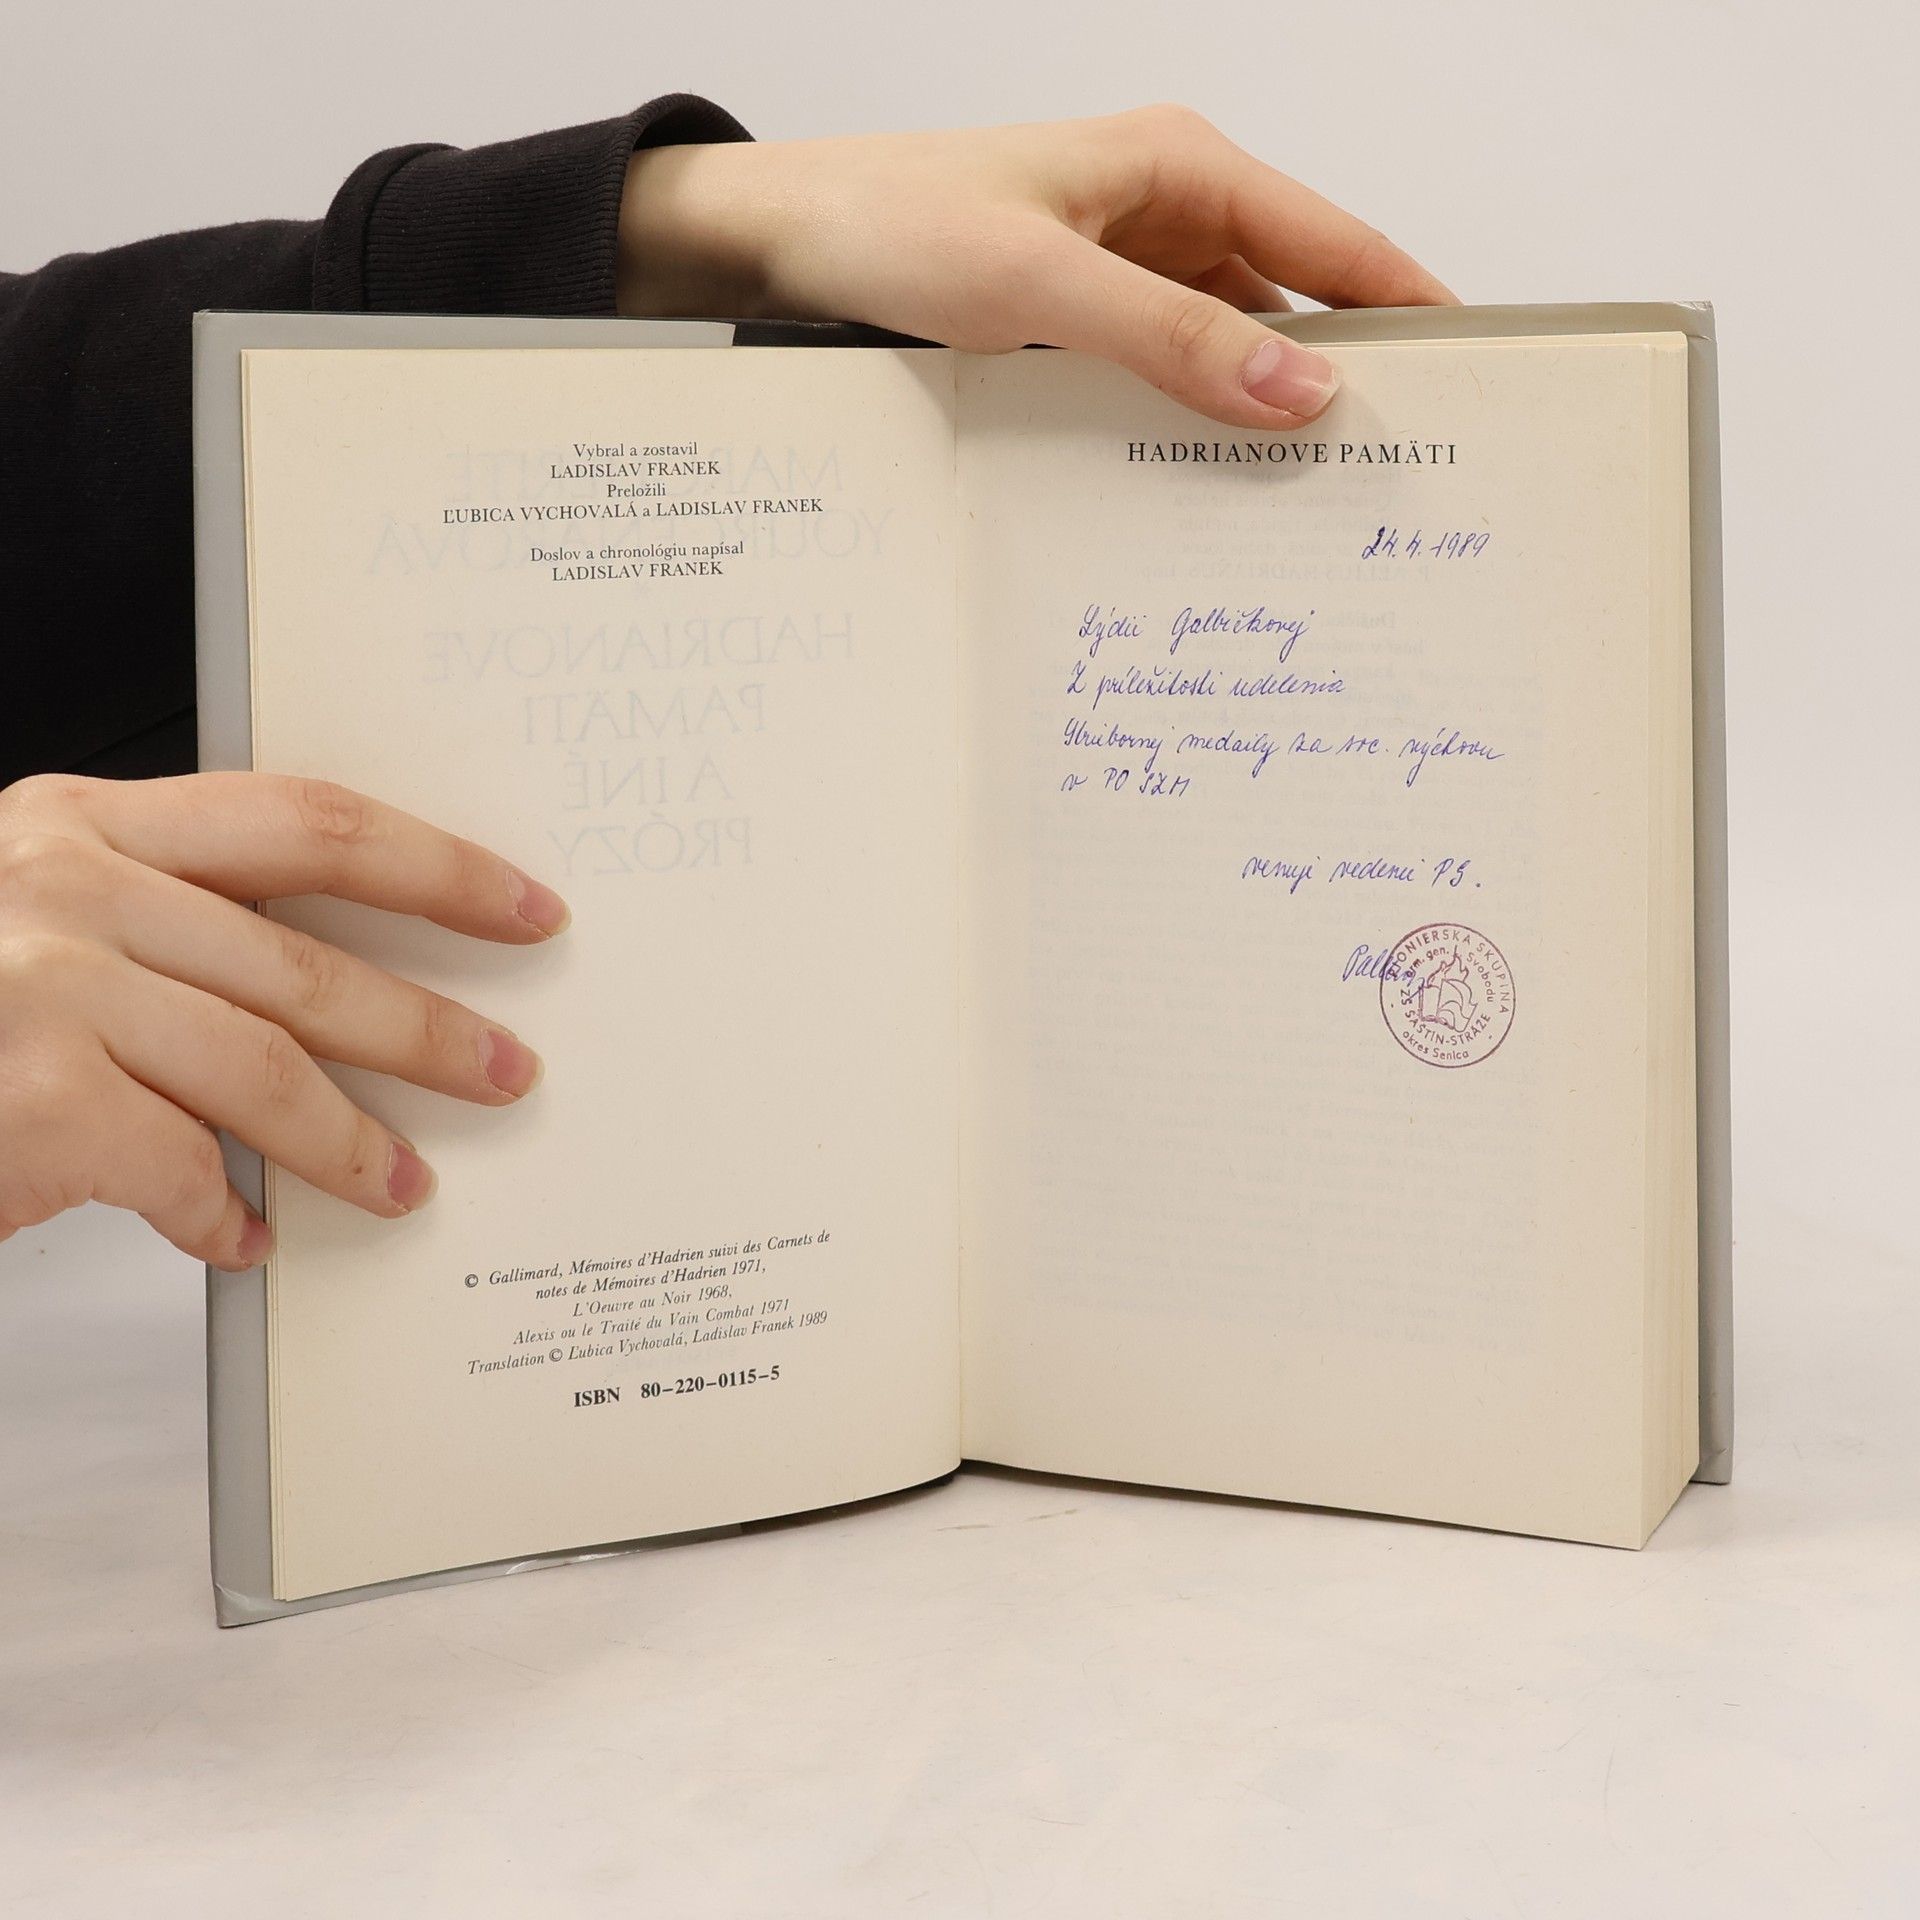 Vybral a zostavil
LADISLAV FRANEK
Preložili
ĽUBICA VYCHOVALÁ a LADISLAV FRANEK
Doslov a chronológiu napísal
LADISLAV FRANEK
© Gallimard, Mémoires d'Hadrien suivi des Carnets de
notes de Mémoires d'Hadrien 1971,
L'Oeuvre au Noir 1968,
Alexis ou le Traité du Vain Combat 1971
Translation © Ľubica Vychovalá, Ladislav Franek 1989
ISBN 80-220-0115-5
HADRIANOVE PAMÄTI
24. 4. 1989
Lýdii Galbičkovej
Z príležitosti udelenia
Striebornej medaily za soc. výchovu
v PO SZM
venuje vedenie PS.
PIONIERSKA SKUPINA
arm. gen. L. Svobodu
SZ
ŠAŠTÍN-STRÁŽE
okres Senica